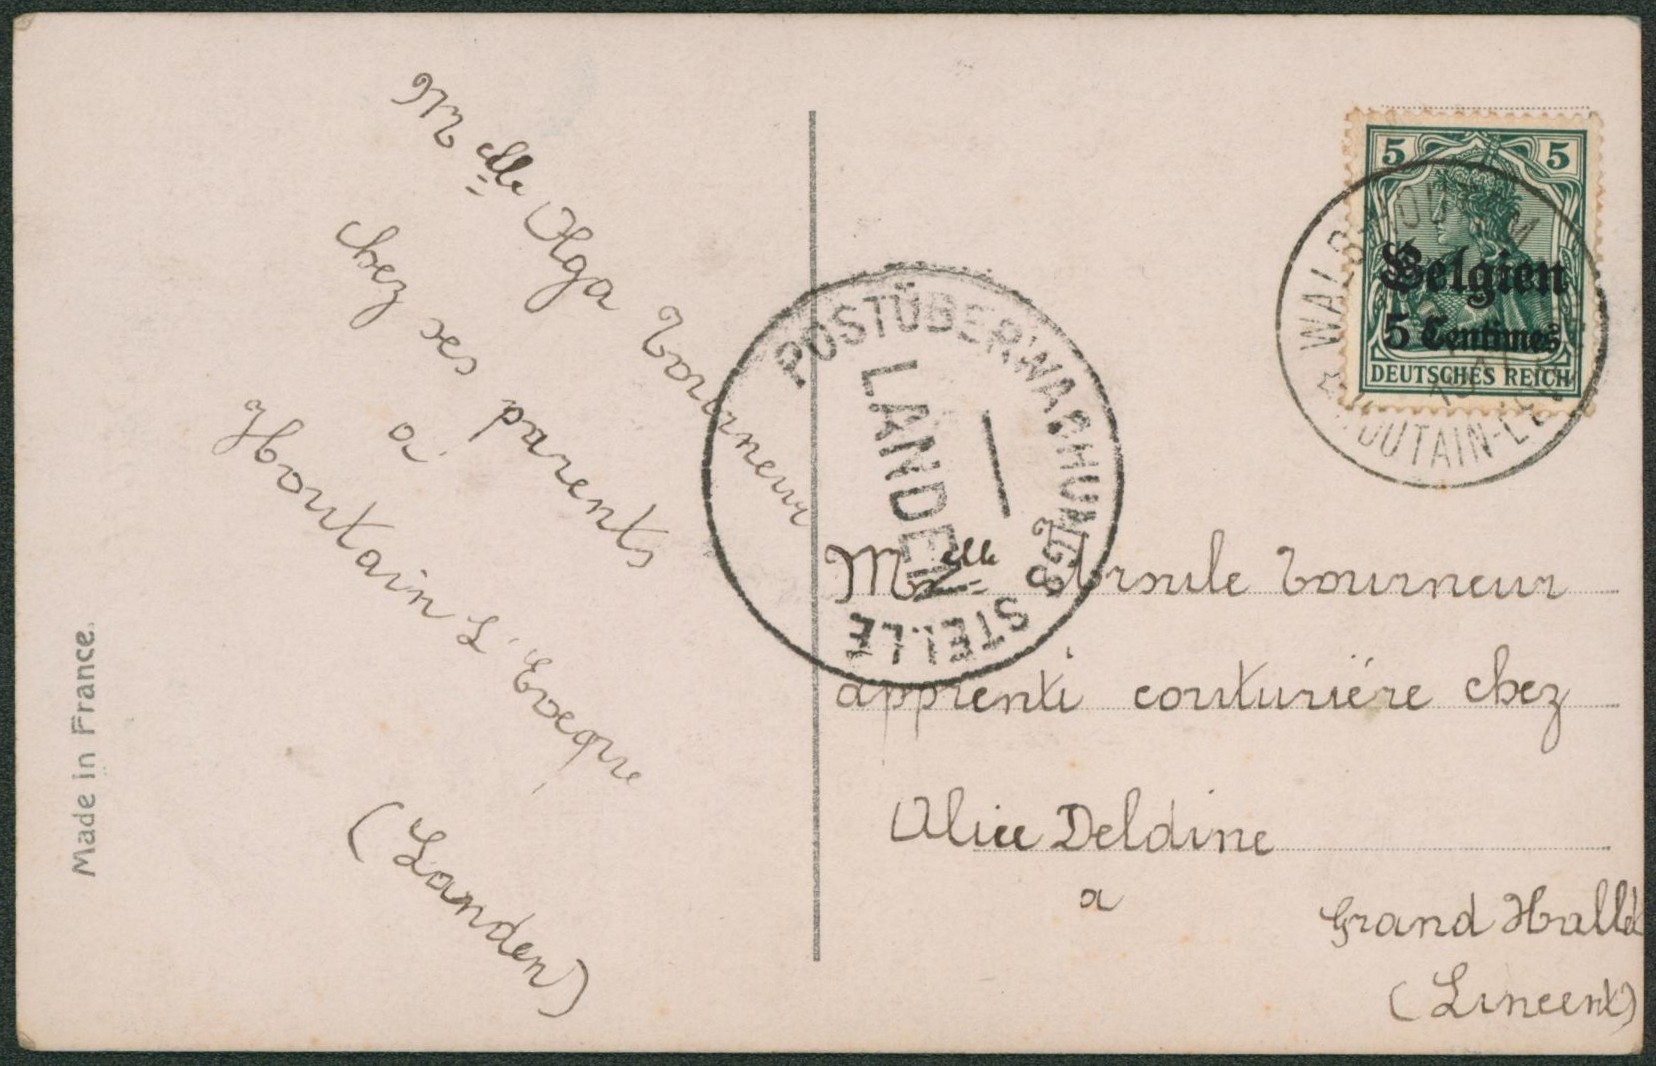 Melle Olga Tourneur
chez ses parents
à
Houtain L'Eveque
(Landen)
Made in France.
POSTÜBERWACHUNGSSTELLE
LANDEN
5 5
Belgien
5 Centimes
DEUTSCHES REICH
WALS-HOUTEM
HOUTAIN-L'
Melle Ursule Tourneur
apprenti couturière chez
Alice Deldine
a
Grand Hallet
(Lincent)